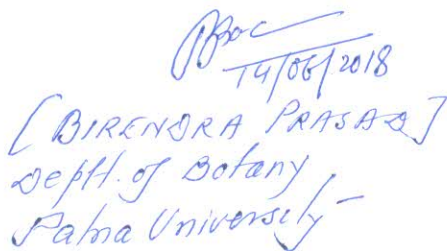 14/06/2018
[BIRENDRA PRASAD]
Deptt. of Botany
Patna University